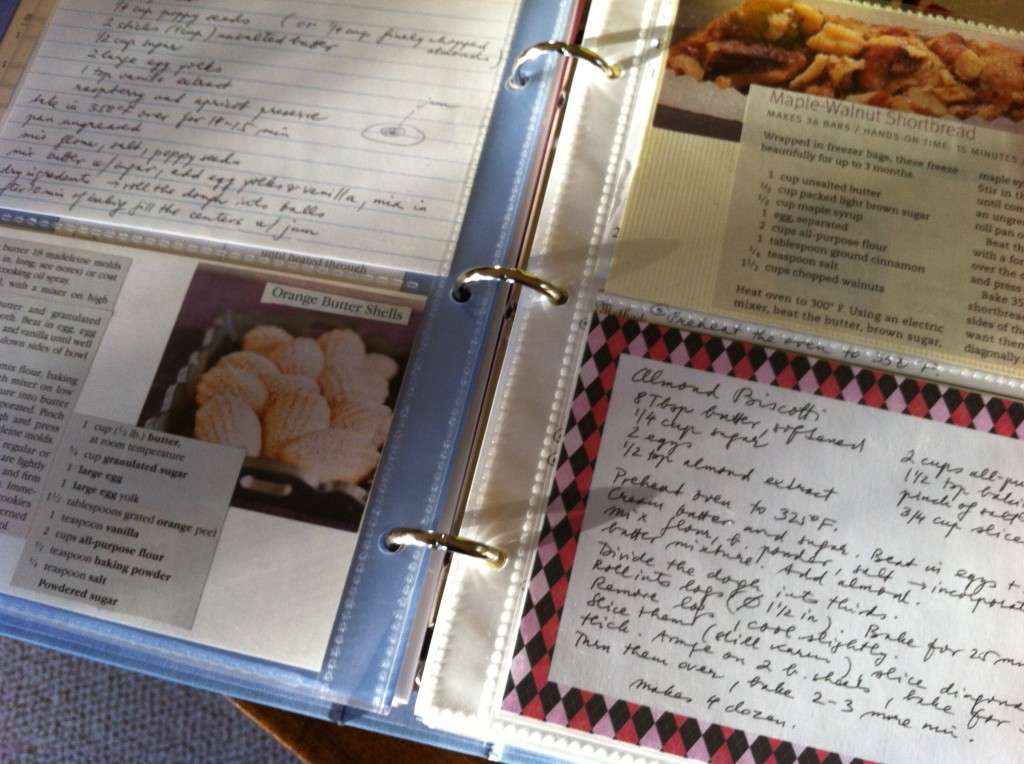 1/2 cup poppy seeds (or 1/2 cup finely chopped almonds)
2 sticks (1 cup) unsalted butter
1/2 cup sugar
2 large egg yolks
1 tsp vanilla extract
raspberry and apricot preserve
bake in 350°F oven for 14-15 min
jam
pan ungreased
mix flour, salt, poppy seeds
mix butter w/sugar, add egg yolks & vanilla, mix in
dry ingredients → roll the dough into balls
after 10 min of baking fill the centers w/ jam
until heated through
butter 18 madeleine molds
in. long; see notes) or coat
cooking oil spray.
, with a mixer on high
butter and granulated
Beat in egg, egg
and vanilla until well
down sides of bowl
mix flour, baking
mixer on low
ture into butter
porated. Pinch
gh and press
deleine molds.
regular or
are lightly
and firm
Imme-
cookies
Orange Butter Shells
1 cup (1/2 lb.) butter,
at room temperature
3/4 cup granulated sugar
1 large egg
1 large egg yolk
1 1/2 tablespoons grated orange peel
1 teaspoon vanilla
2 cups all-purpose flour
1/2 teaspoon baking powder
1/4 teaspoon salt
Powdered sugar
Maple-Walnut Shortbread
MAKES 36 BARS / HANDS-ON TIME: 15 MINUTES
Wrapped in freezer bags, these freeze
beautifully for up to 3 months.
1 cup unsalted butter
1/2 cup packed light brown sugar
1/2 cup maple syrup
1 egg, separated
2 cups all-purpose flour
1 tablespoon ground cinnamon
1/4 teaspoon salt
1 1/2 cups chopped walnuts
Heat oven to 300° F. Using an electric
mixer, beat the butter, brown sugar,
maple sy
Stir in th
until com
an ungre
roll pan o
Beat th
with a for
over the d
and press
Bake 35
shortbrea
sides of the
want them
diagonally
Preheat the oven to 352° F.
Almond Biscotti
8 Tbsp butter, softened
1/4 cup sugar
2 eggs
1/2 tsp almond extract
2 cups all-pu
1 1/2 tsp bakin
pinch of salt
3/4 cup slice
Preheat oven to 325°F.
Cream butter and sugar. Beat in eggs +
mix flour, b. powder, salt → incorporat
butter mixture. Add almond.
Divide the dough into thirds.
Roll into logs (Ø 1 1/2 in). Bake for 25 min
Remove logs, cool slightly.
Slice them (still warm), slice diagona
thick. Arrange on 2 b. sheets, bake for
Turn them over, bake 2-3 more min.
makes 4 dozen.